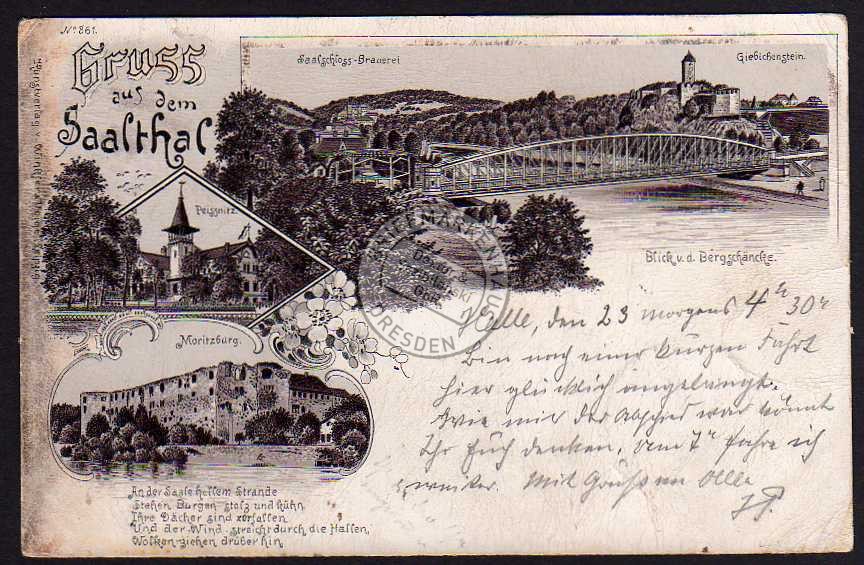 No 861.
Gruss
aus dem
Saalthal
Saalschloss-Brauerei
Giebichenstein.
Peissnitz.
Blick v. d. Bergschäncke.
Moritzburg.
BRIEFMARKENHAUS
DRESDEN
Halle, den 23 morgens 4 30
Bin nach einer kurzen Fahrt
hier glücklich angelangt.
Wie mir der Abschied war könnt
Ihr Euch denken, um 7 fahre ich
weiter. Mit Gruß an Alle
An der Saale hellem Strande
Stehen Burgen stolz und kühn
Ihre Dächer sind zerfallen
Und der Wind streicht durch die Hallen,
Wolken ziehen drüber hin.